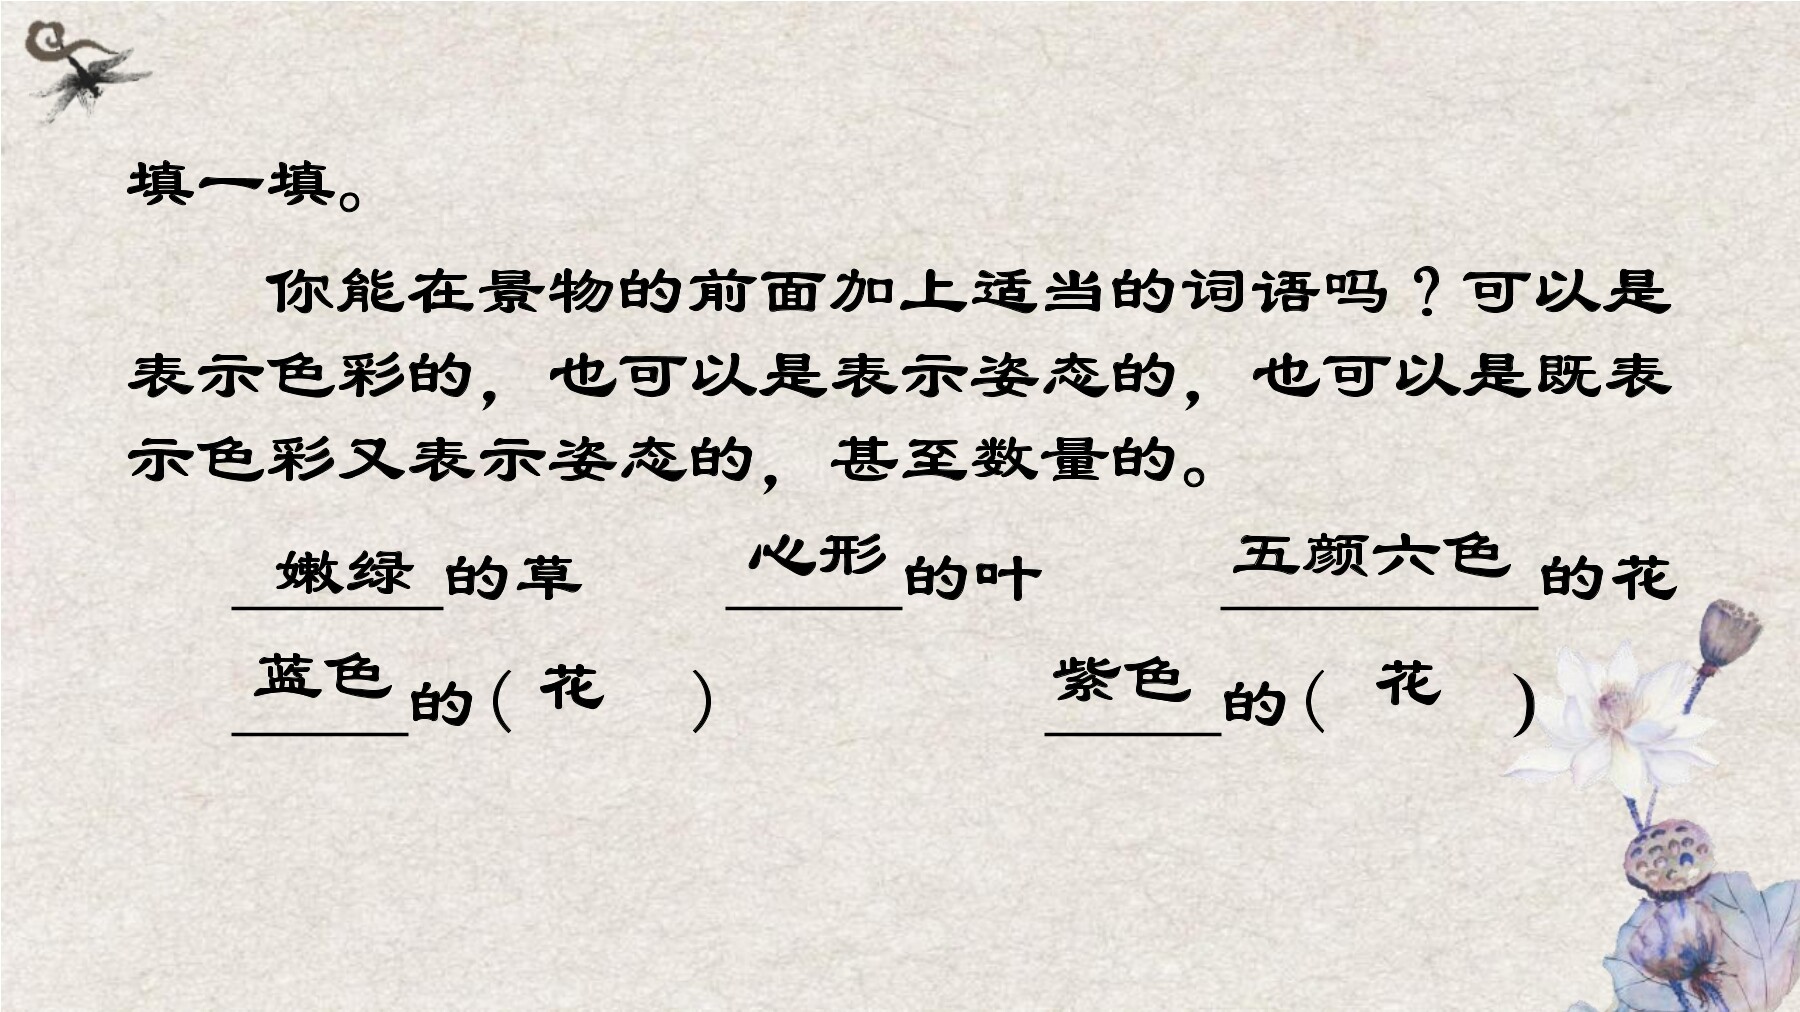 填一填。
你能在景物的前面加上适当的词语吗？可以是
表示色彩的，也可以是表示姿态的，也可以是既表
示色彩又表示姿态的，甚至数量的。
嫩绿的草 心形的叶 五颜六色的花
蓝色的(花) 紫色的(花)